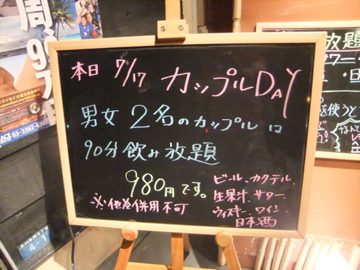 本日 7/17 カップルDAY
男女2名のカップルは
90分飲み放題
980円です。
※他券併用不可
ビール・カクテル、
生果汁・サワー、
ウィスキー・ワイン、
日本酒
放題